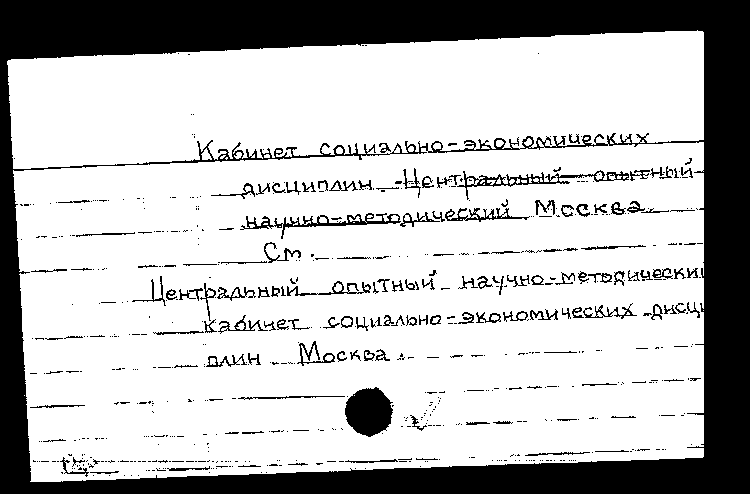 Кабинет социально-экономических
дисциплин Центральный опытный
научно-методический Москва.
См.
Центральный опытный научно-методически
кабинет социально-экономических дисци
плин Москва.